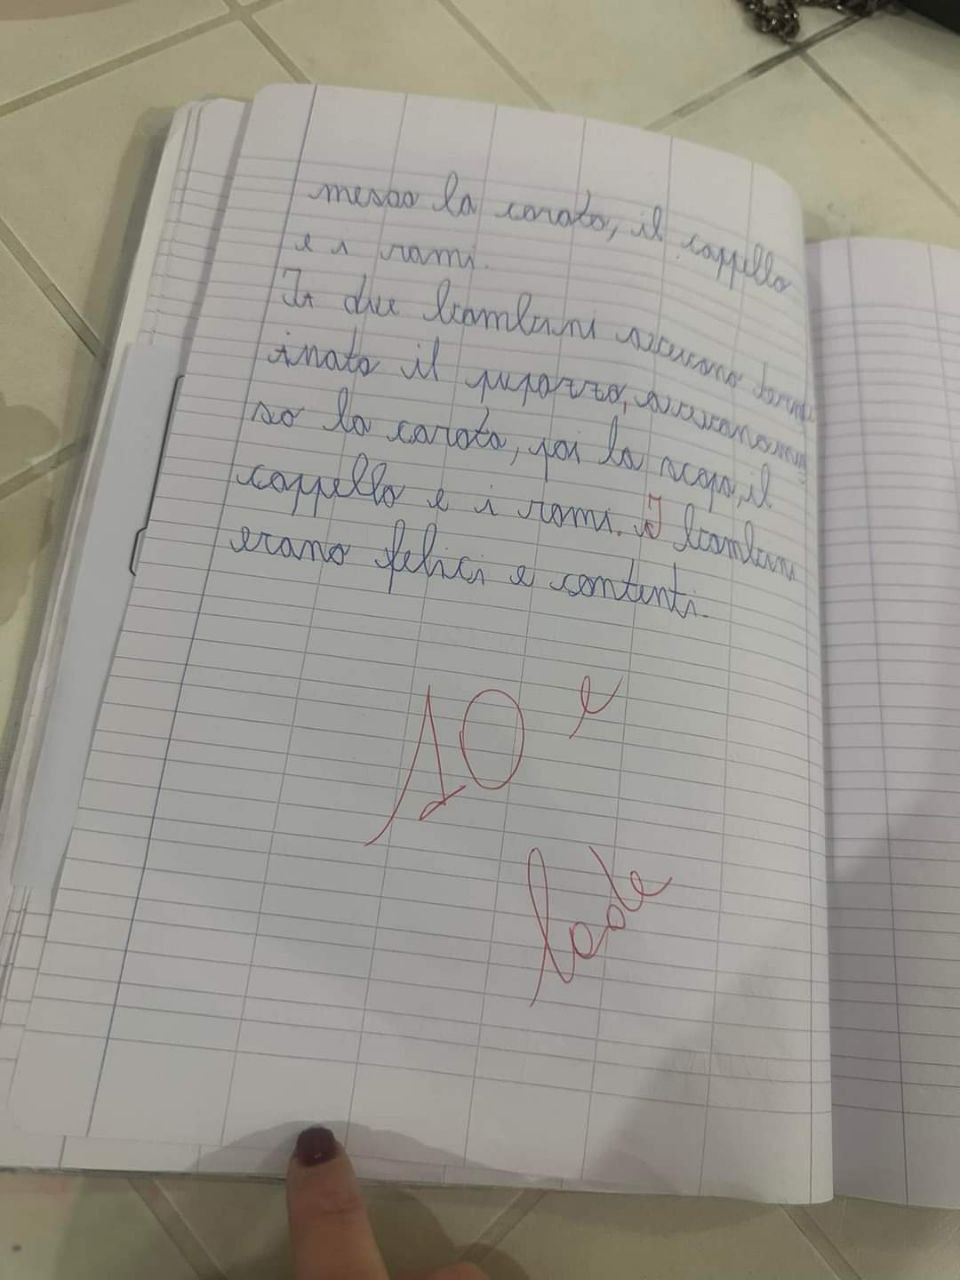 messo la carota, il cappello
e i rami.
I due bambini avevano termi
inato il pupazzo, avevano mes
so la carota, poi la scopa, il
cappello e i rami. I bambini
erano felici e contenti.
10 e
lode